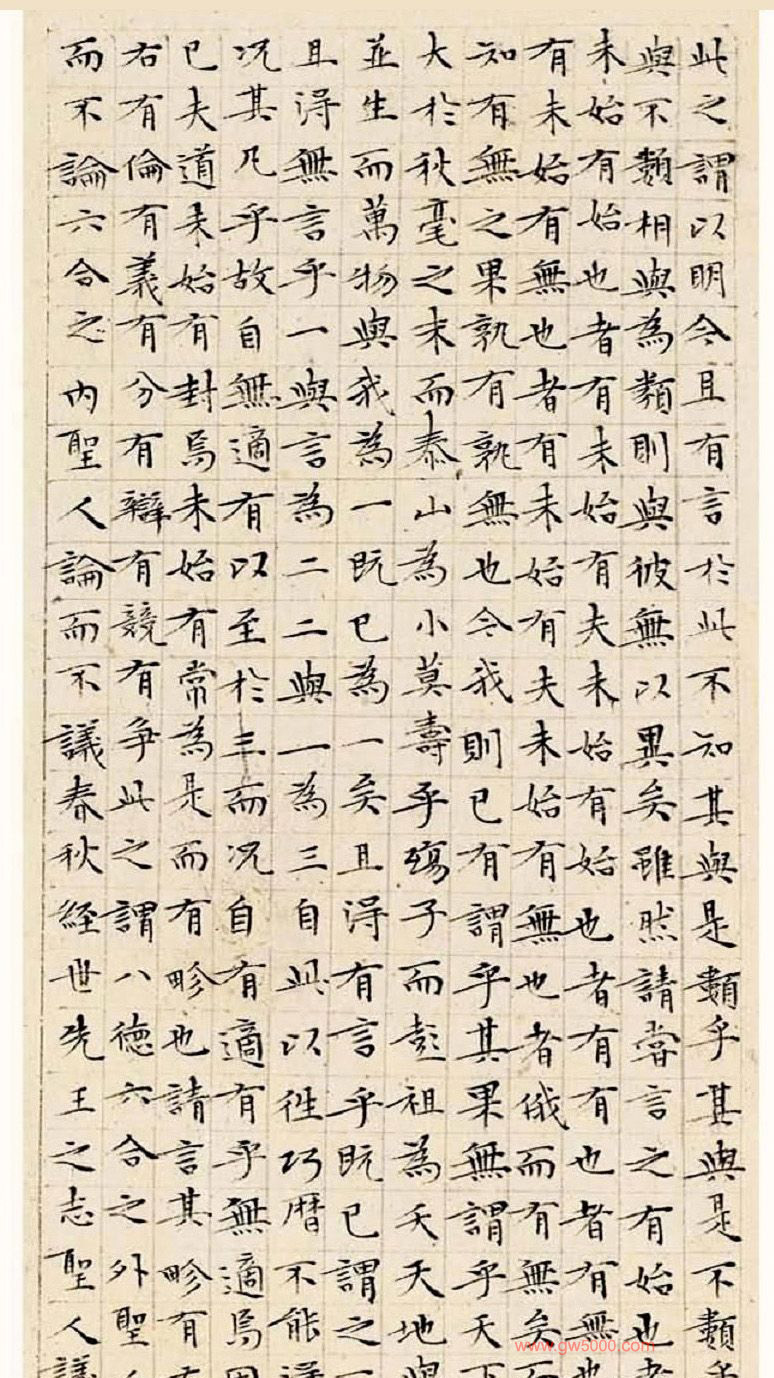 此之謂以明今且有言於此不知其與是類乎其與是不類乎
與不類相與為類則與彼無以異矣雖然請嘗言之有始也者
未始有始也者有未始有夫未始有始也者有有也者有無也
有未始有無也者有未始有夫未始有無也者俄而有無矣而
知有無之果孰有孰無也今我則已有謂乎其果無謂乎天下
大於秋毫之末而泰山為小莫壽乎殤子而彭祖為夭天地與
並生而萬物與我為一既已為一矣且得有言乎既已謂之一
且得無言乎一與言為二二與一為三自此以往巧曆不能得
况其凡乎故自無適有以至於三而况自有適有乎無適焉因
已夫道未始有封焉未始有常為是而有畛也請言其畛有
右有倫有義有分有辯有競有爭此之謂八德六合之外聖
而不論六合之內聖人論而不議春秋經世先王之志聖人議
www.gw5000.com